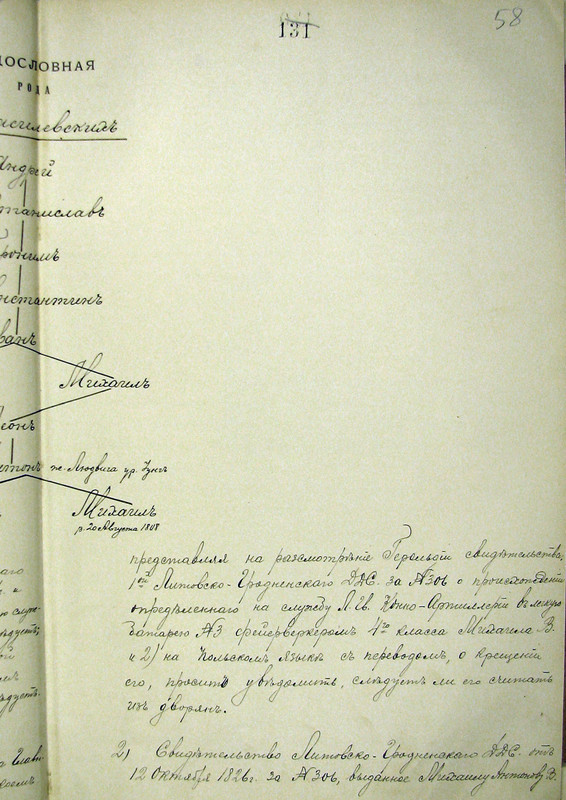 131
58
ДОСЛОВНАЯ
РОДА
Андрей
Станиславъ
Иеронимъ
Константинъ
Иванъ
Михаилъ
Леонъ
Антонъ ж. Людвига ур. Гунгъ
Михаилъ
р. 20 Августа 1808
представляя на разсмотрѣніе Герольдіи свидѣтельства:
1ое Литовско-Гродненскаго Д.Д.С. за №306 о происхожденіи
опредѣленнаго на службу Л. Гв. Конно-Артиллеріи въ легкую
батарею №3 фейерверкеромъ 4го класса Михаила В.
и 2) на Польскомъ языкѣ съ переводомъ, о крещеніи
его, проситъ увѣдомить, слѣдуетъ ли его считать
изъ дворянъ.
2) Свидѣтельство Литовско-Гродненскаго Д.Д.С. отъ
12 Октября 1826 г. за №306, выданное Михаилу Антонову В.